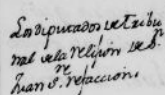 Los diputados de tribu
nal de la religion de Sn
Juan Sre refaccion